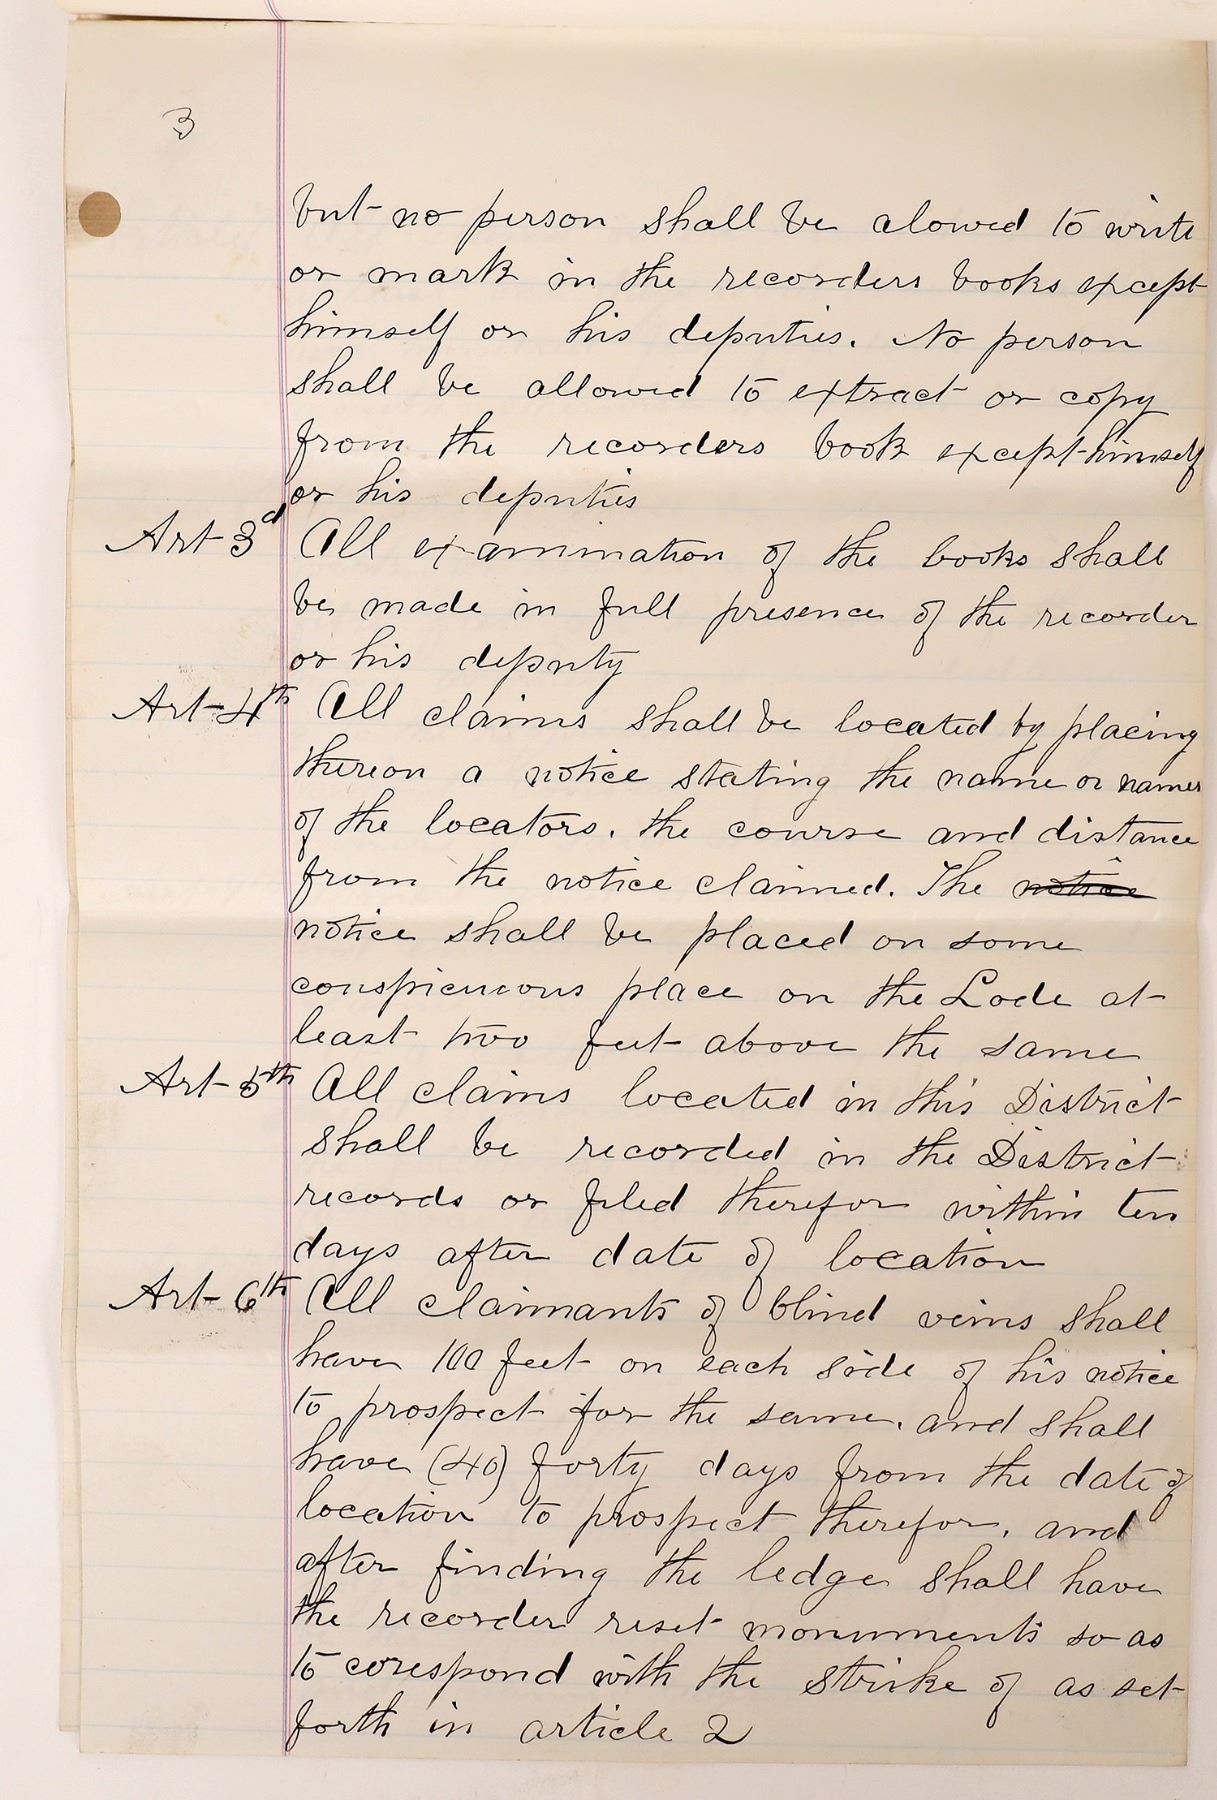 3
but no person shall be alowed to write
or mark in the recorders books except
himself or his deputies. No person
shall be allowed to extract or copy
from the recorders book except himself
or his deputies
Art 3d All examination of the books shall
be made in full presence of the recorder
or his deputy
Art 4th All claims shall be located by placing
thereon a notice stating the name or names
of the locators. the course and distance
from the notice claimed. The notice
notice shall be placed on some
conspicuous place on the Lode at
least two feet above the same
Art 5th All claims located in this District
shall be recorded in the District
records or filed therefor within ten
days after date of location
Art 6th All claimants of blind veins shall
have 100 feet on each side of his notice
to prospect for the same. and shall
have (40) forty days from the date of
location to prospect therefor. and
after finding the ledge shall have
the recorder reset monuments so as
to corespond with the strike of as set
forth in article 2